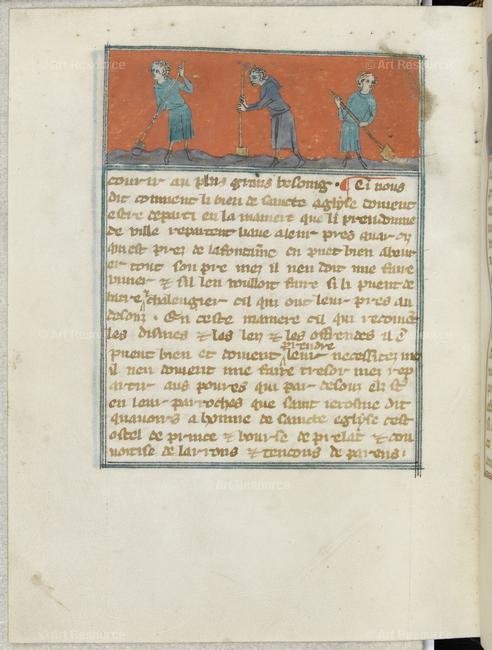 courir au plus grans besoing · Ci vous
dit coment li bien de saincte eglyse doivent
estre departi en la maniere que li preudome
de ville repairent leur pres quar cil
qui est prez de la fontainne en puet bien abeur
er tout son pre mez il nen doit mie faire
vivier & sil len vouloit faire si li pueent de
chalengier cil qui ont leur pres au
desouz · En ceste maniere cil qui recoivent
les dismes & les lez & les offrendes il
pueent bien et doivent prendre leur necessitez mez
il nen doivent mie faire tresor mez rep
artir aus poures qui par desouz eli st
en leur parroches que saint ierosme dit
quavoirs a homme de saincte eglyse cest
ostel de prince & bourse de prelat & cou
voitise de larrons & tencons de parens ·
© Art Resource
© Art Resource
© Art Resource
© Art Resource
© Art Resource